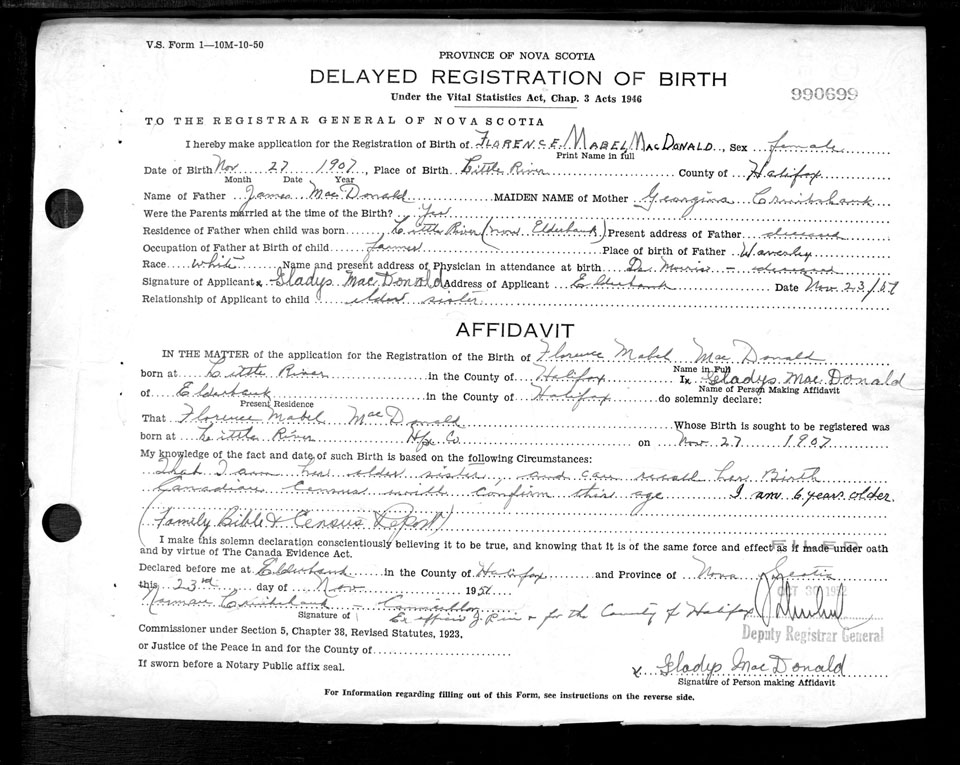 V.S. Form 1—10M-10-50
PROVINCE OF NOVA SCOTIA
DELAYED REGISTRATION OF BIRTH
Under the Vital Statistics Act, Chap. 3 Acts 1946
990699
TO THE REGISTRAR GENERAL OF NOVA SCOTIA
I hereby make application for the Registration of Birth of FLORENCE MABEL MACDONALD, Sex female
Print Name in full
Date of Birth Nov 27 1907, Place of Birth Little River County of Halifax
Month Date Year
Name of Father James MacDonald MAIDEN NAME of Mother Georgina Cruikshank
Were the Parents married at the time of the Birth? Yes
Residence of Father when child was born Little River (now Elderbank) Present address of Father deceased
Occupation of Father at Birth of child farmer Place of birth of Father Waverley
Race white Name and present address of Physician in attendance at birth Dr Morris - deceased
Signature of Applicant x Gladys MacDonald Address of Applicant Elderbank Date Nov 23/51
Relationship of Applicant to child older sister
AFFIDAVIT
IN THE MATTER of the application for the Registration of the Birth of Florence Mabel MacDonald
Name in Full
born at Little River in the County of Halifax I x Gladys MacDonald
Name of Person Making Affidavit
of Elderbank in the County of Halifax do solemnly declare:
Present Residence
That Florence Mabel MacDonald Whose Birth is sought to be registered was
born at Little River Hfx Co on Nov 27 1907
My knowledge of the fact and date of such Birth is based on the following Circumstances:
That I am her older sister, and can recall her Birth
Canadian Census will confirm this age I am 6 years older
(Family Bible & Census Report)
I make this solemn declaration conscientiously believing it to be true, and knowing that it is of the same force and effect as if made under oath
and by virtue of The Canada Evidence Act.
FILED
Declared before me at Elderbank in the County of Halifax and Province of Nova Scotia
this 23rd day of Nov 1951
OCT 1952
Norman Cruikshank - Councillor
Signature of Ex officio J. P. in & for the County of Halifax
Deputy Registrar General
Commissioner under Section 5, Chapter 38, Revised Statutes, 1923,
or Justice of the Peace in and for the County of
If sworn before a Notary Public affix seal.
x Gladys MacDonald
Signature of Person making Affidavit
For Information regarding filling out of this Form, see instructions on the reverse side.